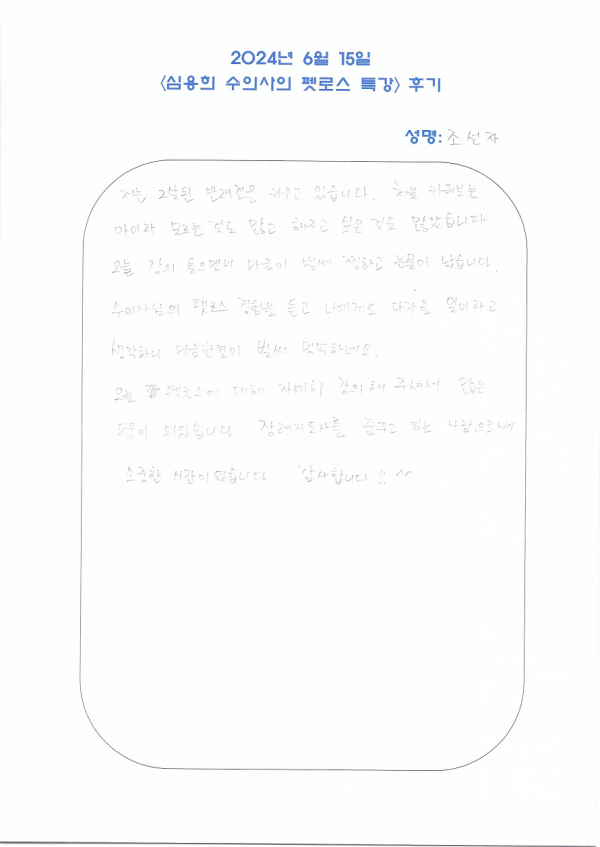 2024년 6월 15일
<심용희 수의사의 펫로스 특강> 후기
성명: 조선자
저는 2살된 반려견을 키우고 있습니다. 처음 키워보는
아이라 모르는 것도 많고 해주고 싶은 것도 많았습니다
오늘 강의 들으면서 마음이 벌써 찡하고 눈물이 났습니다.
수의사님의 펫로스 경험을 듣고 나에게도 다가올 일이라고
생각하니 마음한켠이 벌써 먹먹하네요.
오늘 펫로스에 대해 자세히 강의해 주셔서 많은
도움이 되었습니다 장례지도사를 꿈꾸고 있는 사람으로써
소중한 시간이었습니다. 감사합니다!! ^^